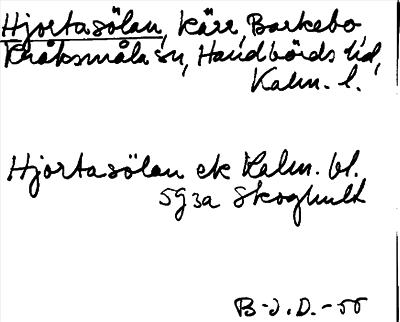 Hjortasölan, kärr, Barkebo,
Kråksmåla sn, Handbörds hd,
Kalm. l.
Hjortasölan ek Kalm. bl.
5G3a Skoghult
B-J.D.-55